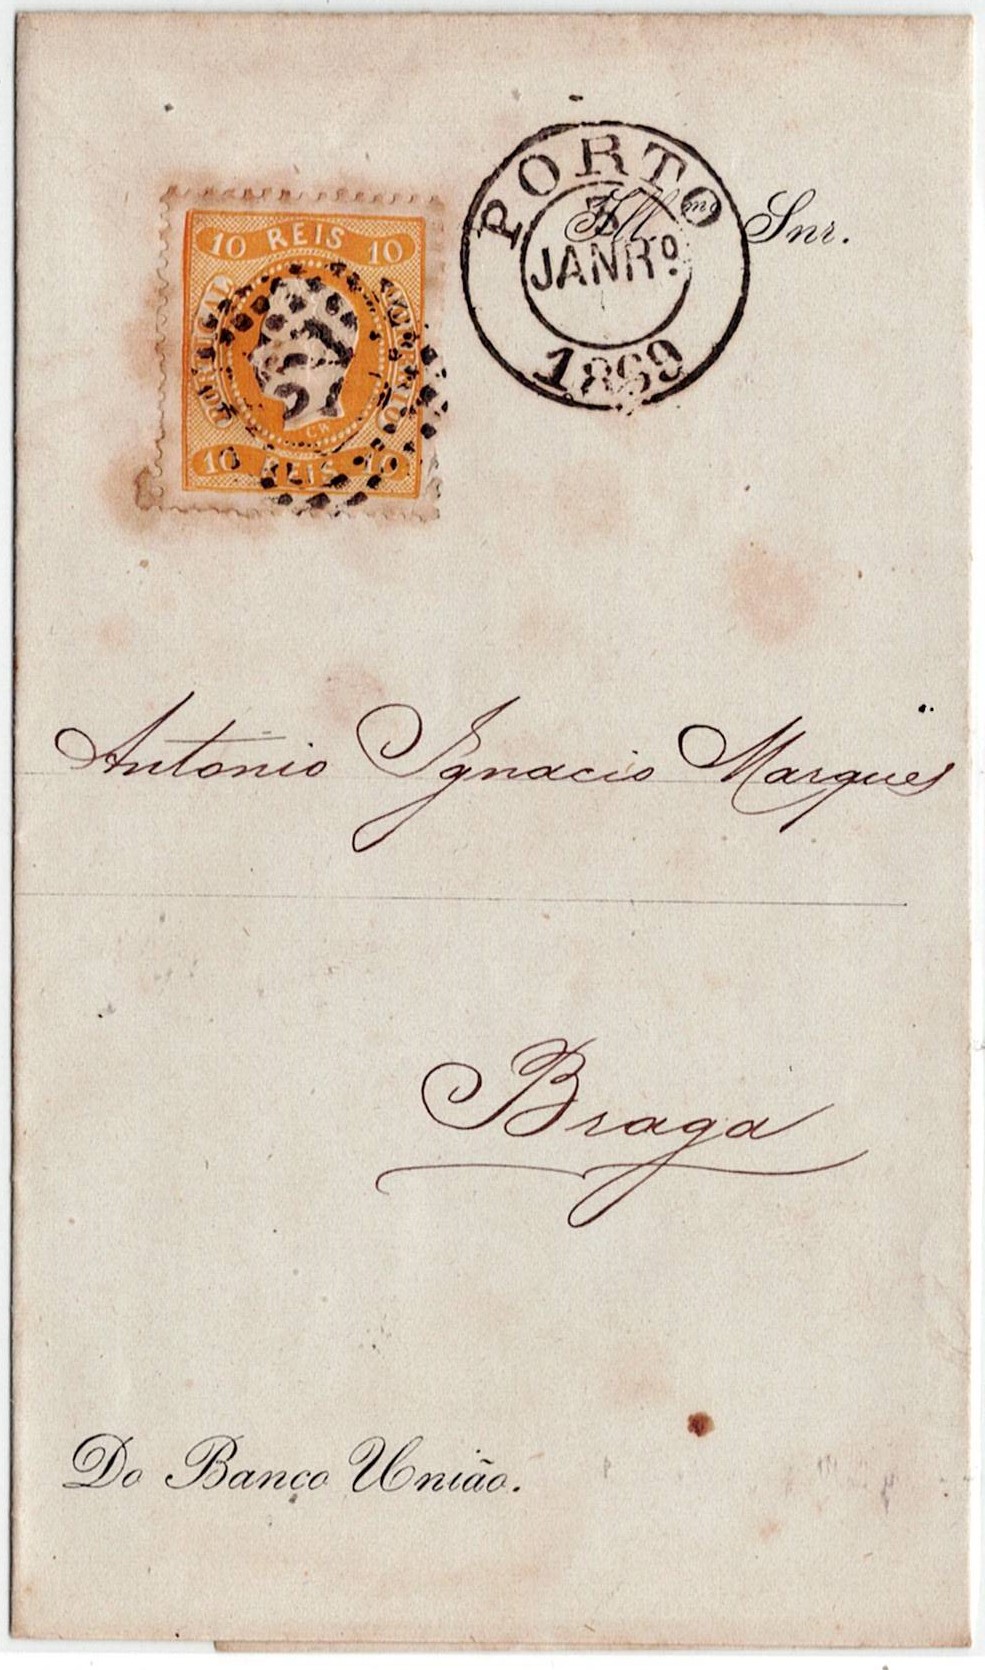 10 REIS 10
PORTUGAL
CORREIO
C.W.
10 REIS 10
PORTO
JANRº
1869
Illmo Snr.
Antonio Ignacio Marques
Braga
Do Banco União.